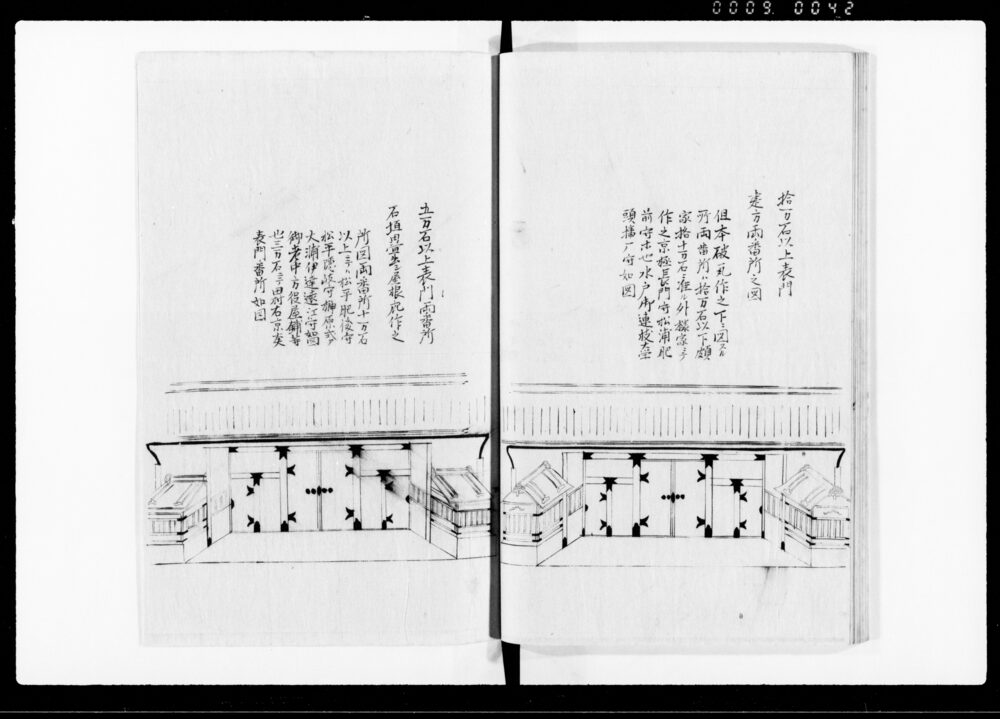 0009 0042
拾一万石以上表門
建方両番所之図
但本破風作之下ニ図スル
所両番所ハ拾万石以下頗
家拾十万石ニ准ル外様家ニテ
作之京極長門守松浦肥
前守ホ也水戸御連枝大学
頭播广守如図
五万石以上表門両番所
石垣畳出シ屋根瓦作之
所図両番所十一万石
以上ニテハ松平肥後守
松平隠岐守榊原式ア
大浦伊達遠江守如図
御老中方役屋鋪等
也三万石ニテ田村右京亥
表門番所如図